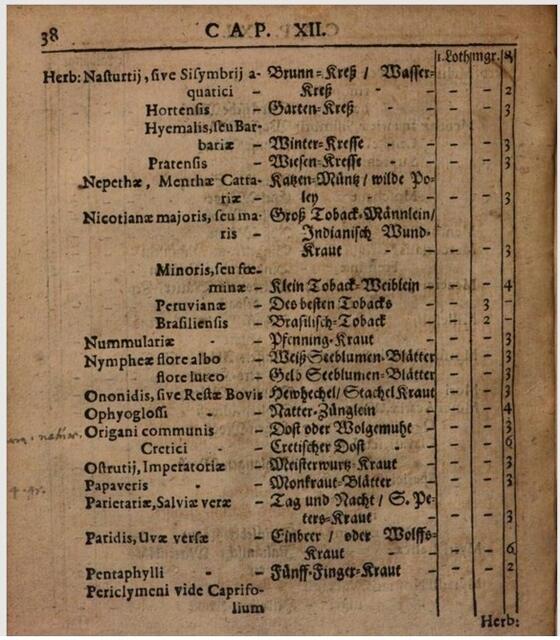 38 CAP. XII.
1. Loth mgr. ₰
Herb: Nasturtij, sive Sisymbrij a- Brunn-Kreß / Wasser-
quatici - Kreß - - - 2
Hortensis - Garten-Kreß - - - 3
Hyemalis, seu Bar-
bariæ - Winter-Kresse - - - 3
Pratensis - Wiesen-Kresse - - - 3
Nepethæ, Menthæ Catta- Katzen-Müntz / wilde Po-
riæ - ley - - - 3
Nicotianæ majoris, seu ma- Groß Toback-Männlein /
ris - Indianisch Wund-
Kraut - - - 3
Minoris, seu fœ-
minæ - Klein Toback-Weiblein - - - 4
Peruvianæ - Des besten Tobacks - - 3 -
Brasiliensis - Brasilisch-Toback - - 2 -
Nummulariæ - Pfenning-Kraut - - - 3
Nympheæ flore albo - Weiß Seeblumen-Blätter - - - 3
flore luteo - Gelb Seeblumen-Blätter - - - 3
Ononidis, sive Restæ Bovis Hewhechel / Stachel Kraut - - - 3
Ophyoglossi - Natter-Zünglein - - - 4
Origani communis - Dost oder Wolgemuht - - - 3
Cretici - Cretischer Dost - - - 6
Ostrutij, Imperatoriæ - Meisterwurtz-Kraut - - - 3
Papaveris - Monkraut-Blätter - - - 3
Parietariæ, Salviæ veræ - Tag und Nacht / S. Pe-
ters-Kraut - - - 3
Paridis, Uvæ versæ - Einbeer / oder Wolffs-
Kraut - - - 6
Pentaphylli - - Fünff-Finger-Kraut - - - 2
Periclymeni vide Caprifo-
lium
Herb: